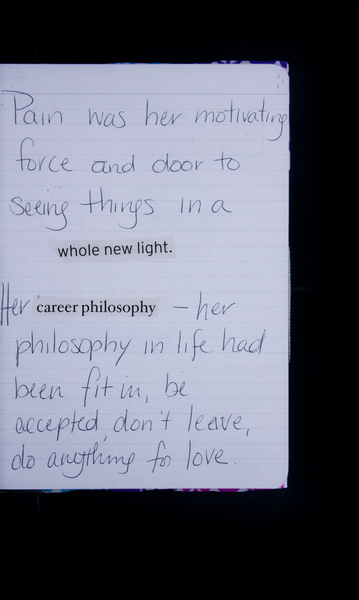 Pain was her motivating
force and door to
seeing things in a
whole new light.
Her career philosophy – her
philosophy in life had
been fit in, be
accepted, don't leave,
do anything for love.